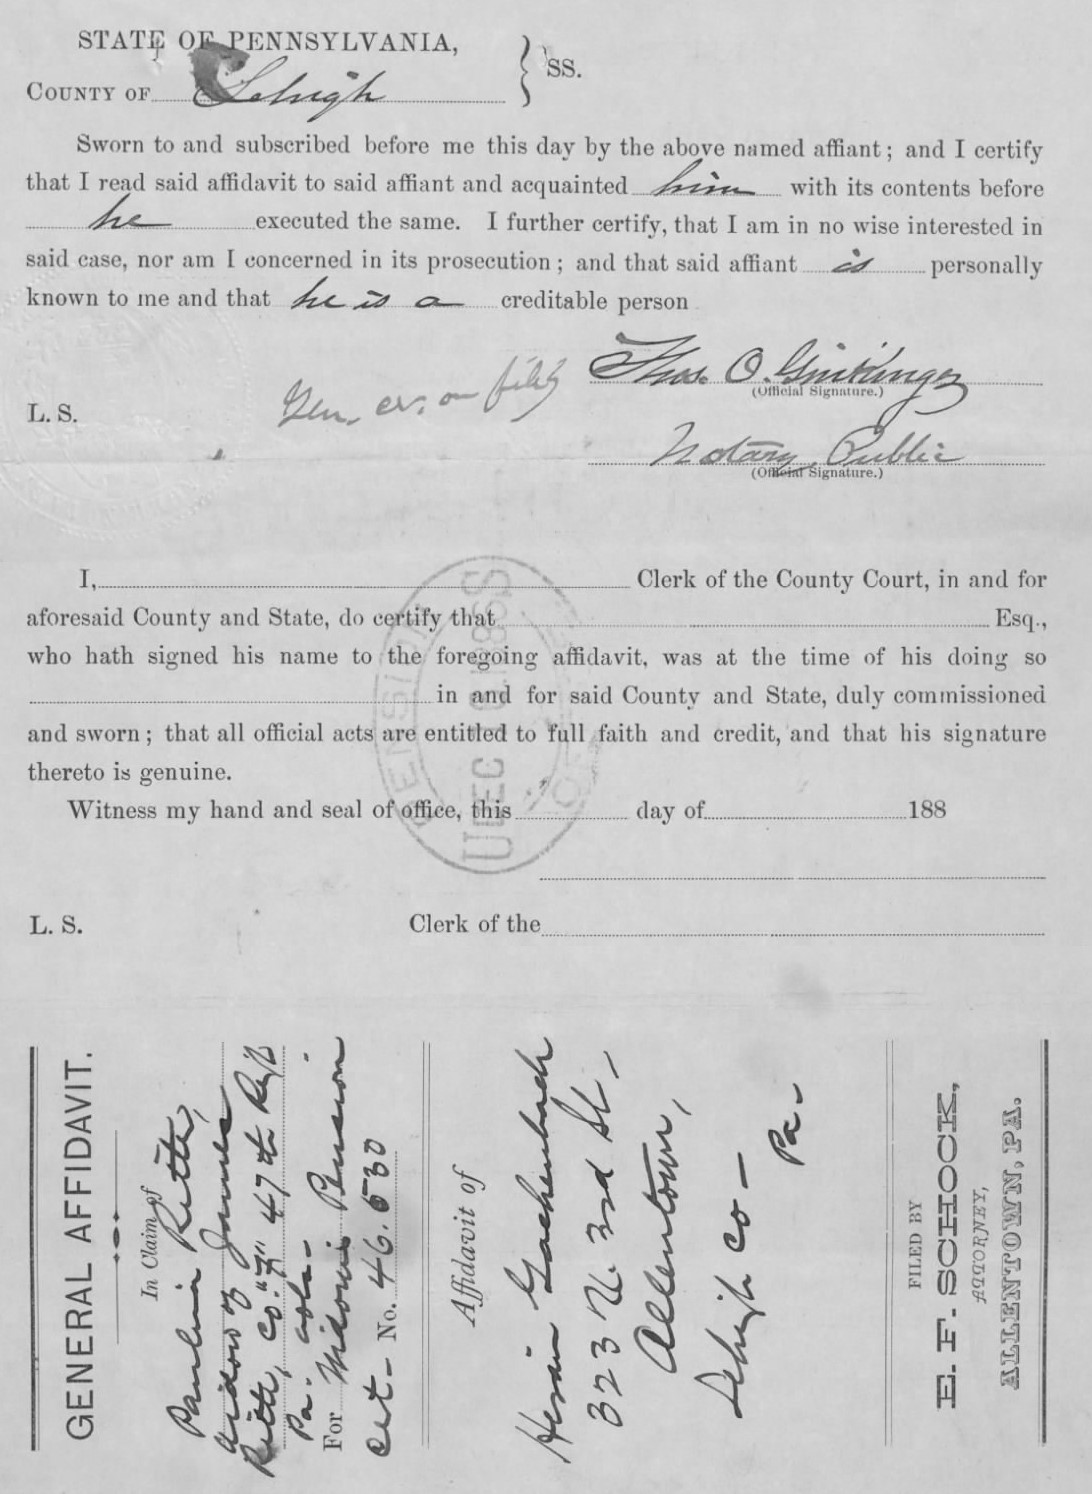 STATE OF PENNSYLVANIA,
SS.
COUNTY OF Lehigh
Sworn to and subscribed before me this day by the above named affiant; and I certify
that I read said affidavit to said affiant and acquainted him with its contents before
he executed the same. I further certify, that I am in no wise interested in
said case, nor am I concerned in its prosecution; and that said affiant is personally
known to me and that he is a creditable person
Thos. O. Ginkinger
(Official Signature.)
Gen. ev. on
L. S.
Notary Public
(Official Signature.)
I, Clerk of the County Court, in and for
aforesaid County and State, do certify that Esq.,
who hath signed his name to the foregoing affidavit, was at the time of his doing so
in and for said County and State, duly commissioned
and sworn; that all official acts are entitled to full faith and credit, and that his signature
thereto is genuine.
Witness my hand and seal of office, this day of 188
L. S. Clerk of the
PENSION
DEC
GENERAL AFFIDAVIT.
In Claim of
Paulina Ritter,
widow of James
Ritter, Co. 47th Regt
Pa. Vols.
For Widow's Pension
Cert. No. 46.530
Affidavit of
Hiram Gachenbach
323 N. 3rd St,
Allentown,
Lehigh Co -
Pa -
FILED BY
E. F. SCHOCK,
ATTORNEY,
ALLENTOWN, PA.